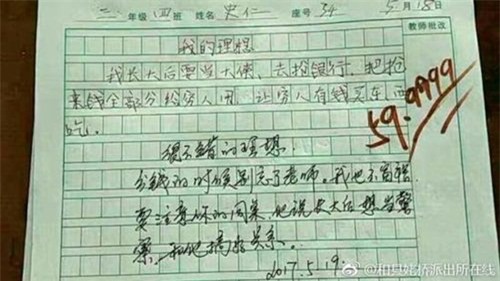 二年级四班 姓名史仁 座号34 5月18日
教师批改
我的理想
我长大后要当大侠,去抢银行,把抢
来钱全部分给穷人用,让穷人有钱买东西
吃。
59.9999
很不错的理想
分钱的时候别忘了老师。我也不富裕
要注意你的同桌,他说长大后想当警
察,和他搞好关系。
2017.5.19.
@和县姥桥派出所在线